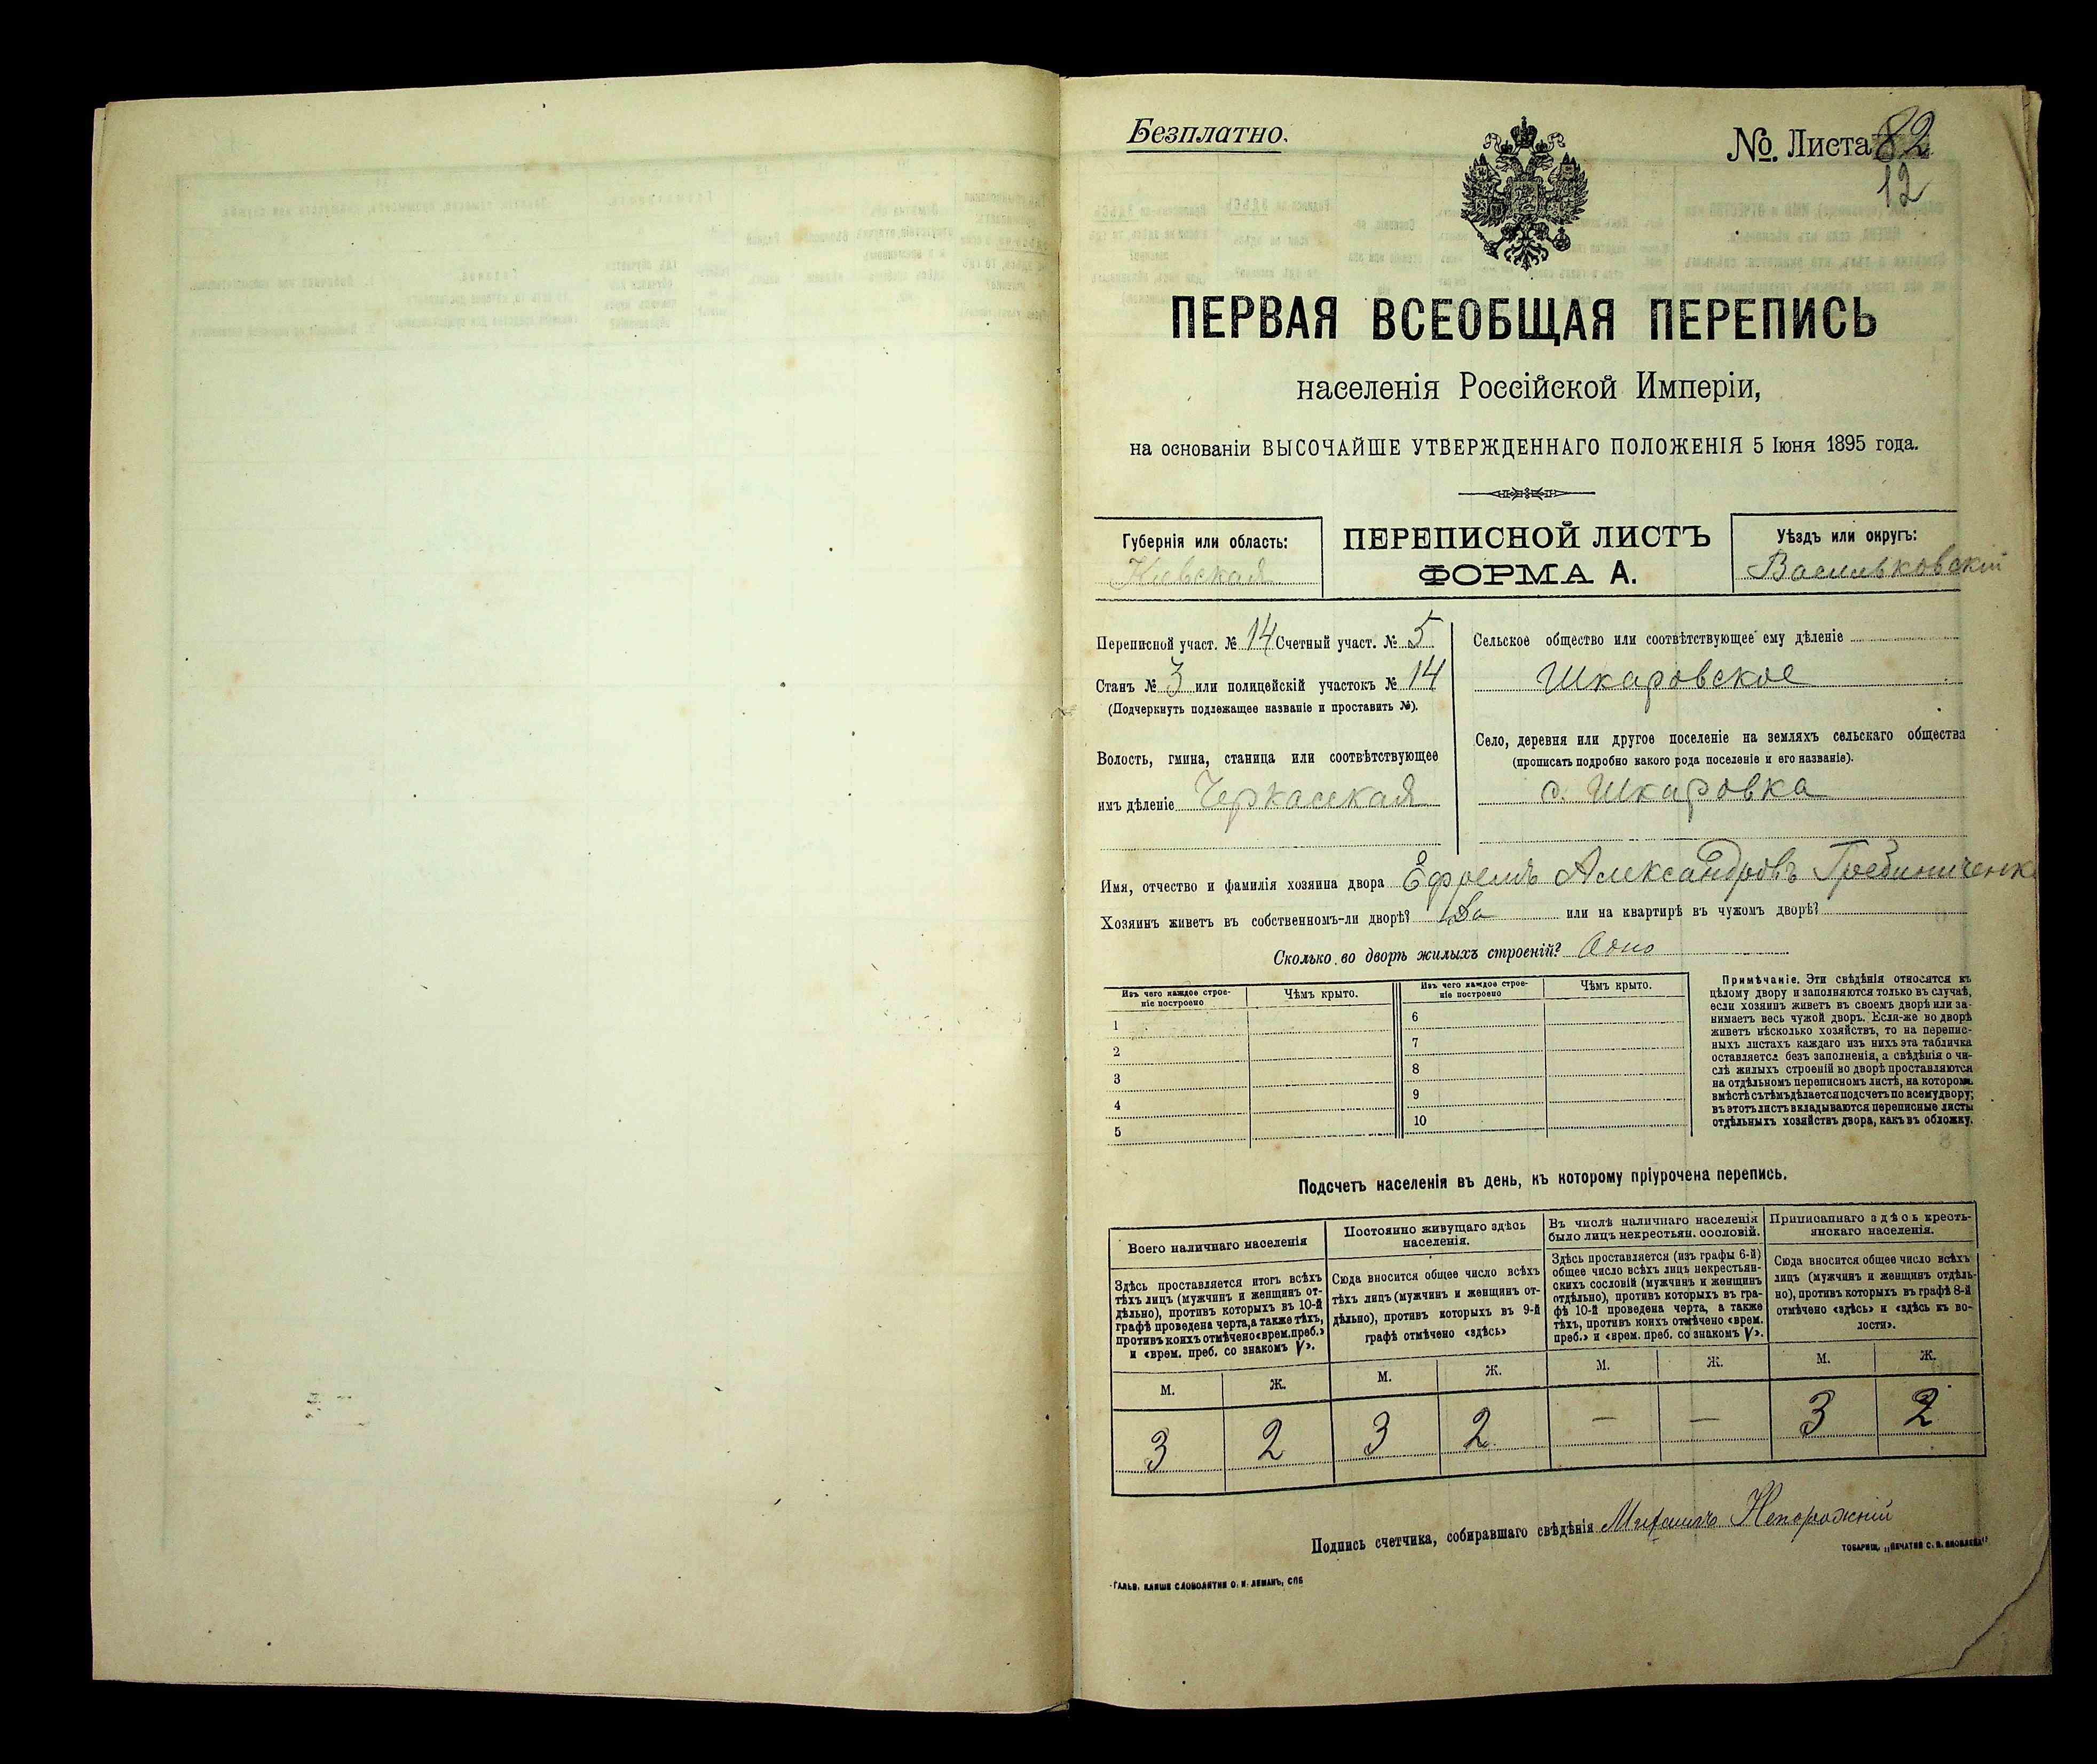 Безплатно.
№. Листа 82
12
ПЕРВАЯ ВСЕОБЩАЯ ПЕРЕПИСЬ
населенія Россійской Имперіи,
на основаніи ВЫСОЧАЙШЕ УТВЕРЖДЕННАГО ПОЛОЖЕНІЯ 5 Іюня 1895 года.
Губернія или область:
Кіевская
ПЕРЕПИСНОЙ ЛИСТЪ
ФОРМА А.
Уѣздъ или округъ:
Васильковскій
Переписной участ. № 14 Счетный участ. № 5
Станъ № 3 или полицейскій участокъ № 14
(Подчеркнуть подлежащее названіе и проставить №).
Волость, гмина, станица или соотвѣтствующее
имъ дѣленіе Черкасская
Сельское общество или соотвѣтствующее ему дѣленіе
Шкаровское
Село, деревня или другое поселеніе на земляхъ сельскаго общества
(прописать подробно какого рода поселеніе и его названіе).
с. Шкаровка
Имя, отчество и фамилія хозяина двора Ефремъ Александровъ Гребиниченко
Хозяинъ живетъ въ собственномъ-ли дворѣ? Да или на квартирѣ въ чужомъ дворѣ?
Сколько во дворѣ жилыхъ строеній? Одно
Изъ чего каждое строе-
ніе построено
Чѣмъ крыто.
Изъ чего каждое строе-
ніе построено
Чѣмъ крыто.
1
2
3
4
5
6
7
8
9
10
Примѣчаніе. Эти свѣдѣнія относятся къ
цѣлому двору и заполняются только въ случаѣ,
если хозяинъ живетъ въ своемъ дворѣ или за-
нимаетъ весь чужой дворъ. Если-же во дворѣ
живетъ нѣсколько хозяйствъ, то на перепис-
ныхъ листахъ каждаго изъ нихъ эта табличка
оставляется безъ заполненія, а свѣдѣнія о чи-
слѣ жилыхъ строеній во дворѣ проставляются
на отдѣльномъ переписномъ листѣ, на которомъ
вмѣстѣ съ тѣмъ дѣлается подсчетъ по всему двору;
въ этотъ листъ вкладываются переписные листы
отдѣльныхъ хозяйствъ двора, какъ въ обложку.
Подсчетъ населенія въ день, къ которому пріурочена перепись.
Всего наличнаго населенія
Здѣсь проставляется итогъ всѣхъ
тѣхъ лицъ (мужчинъ и женщинъ от-
дѣльно), противъ которыхъ въ 10-й
графѣ проведена черта, а также тѣхъ,
противъ коихъ отмѣчено «врем. преб.»
и «врем. преб. со знакомъ V».
Постоянно живущаго здѣсь
населенія.
Сюда вносится общее число всѣхъ
тѣхъ лицъ (мужчинъ и женщинъ от-
дѣльно), противъ которыхъ въ 9-й
графѣ отмѣчено «здѣсь»
Въ числѣ наличнаго населенія
было лицъ некрестьян. сословій.
Здѣсь проставляется (изъ графы 6-й)
общее число всѣхъ лицъ некрестьян-
скихъ сословій (мужчинъ и женщинъ
отдѣльно), противъ которыхъ въ гра-
фѣ 10-й проведена черта, а также
тѣхъ, противъ коихъ отмѣчено «врем.
преб.» и «врем. преб. со знакомъ V».
Приписаннаго здѣсь кресть-
янскаго населенія.
Сюда вносится общее число всѣхъ
лицъ (мужчинъ и женщинъ отдѣль-
но), противъ которыхъ въ графѣ 8-й
отмѣчено «здѣсь» и «здѣсь къ во-
лости».
М. Ж. М. Ж. М. Ж. М. Ж.
3 2 3 2 — — 3 2
Подпись счетчика, собиравшаго свѣдѣнія Михаилъ Непорожній
ТОВАРИЩ. „ПЕЧАТНЯ С. П. ЯКОВЛЕВА"
ГАЛЬВ. КЛИШЕ СЛОВОЛИТНИ О. И. ЛЕМАНЪ, СПБ